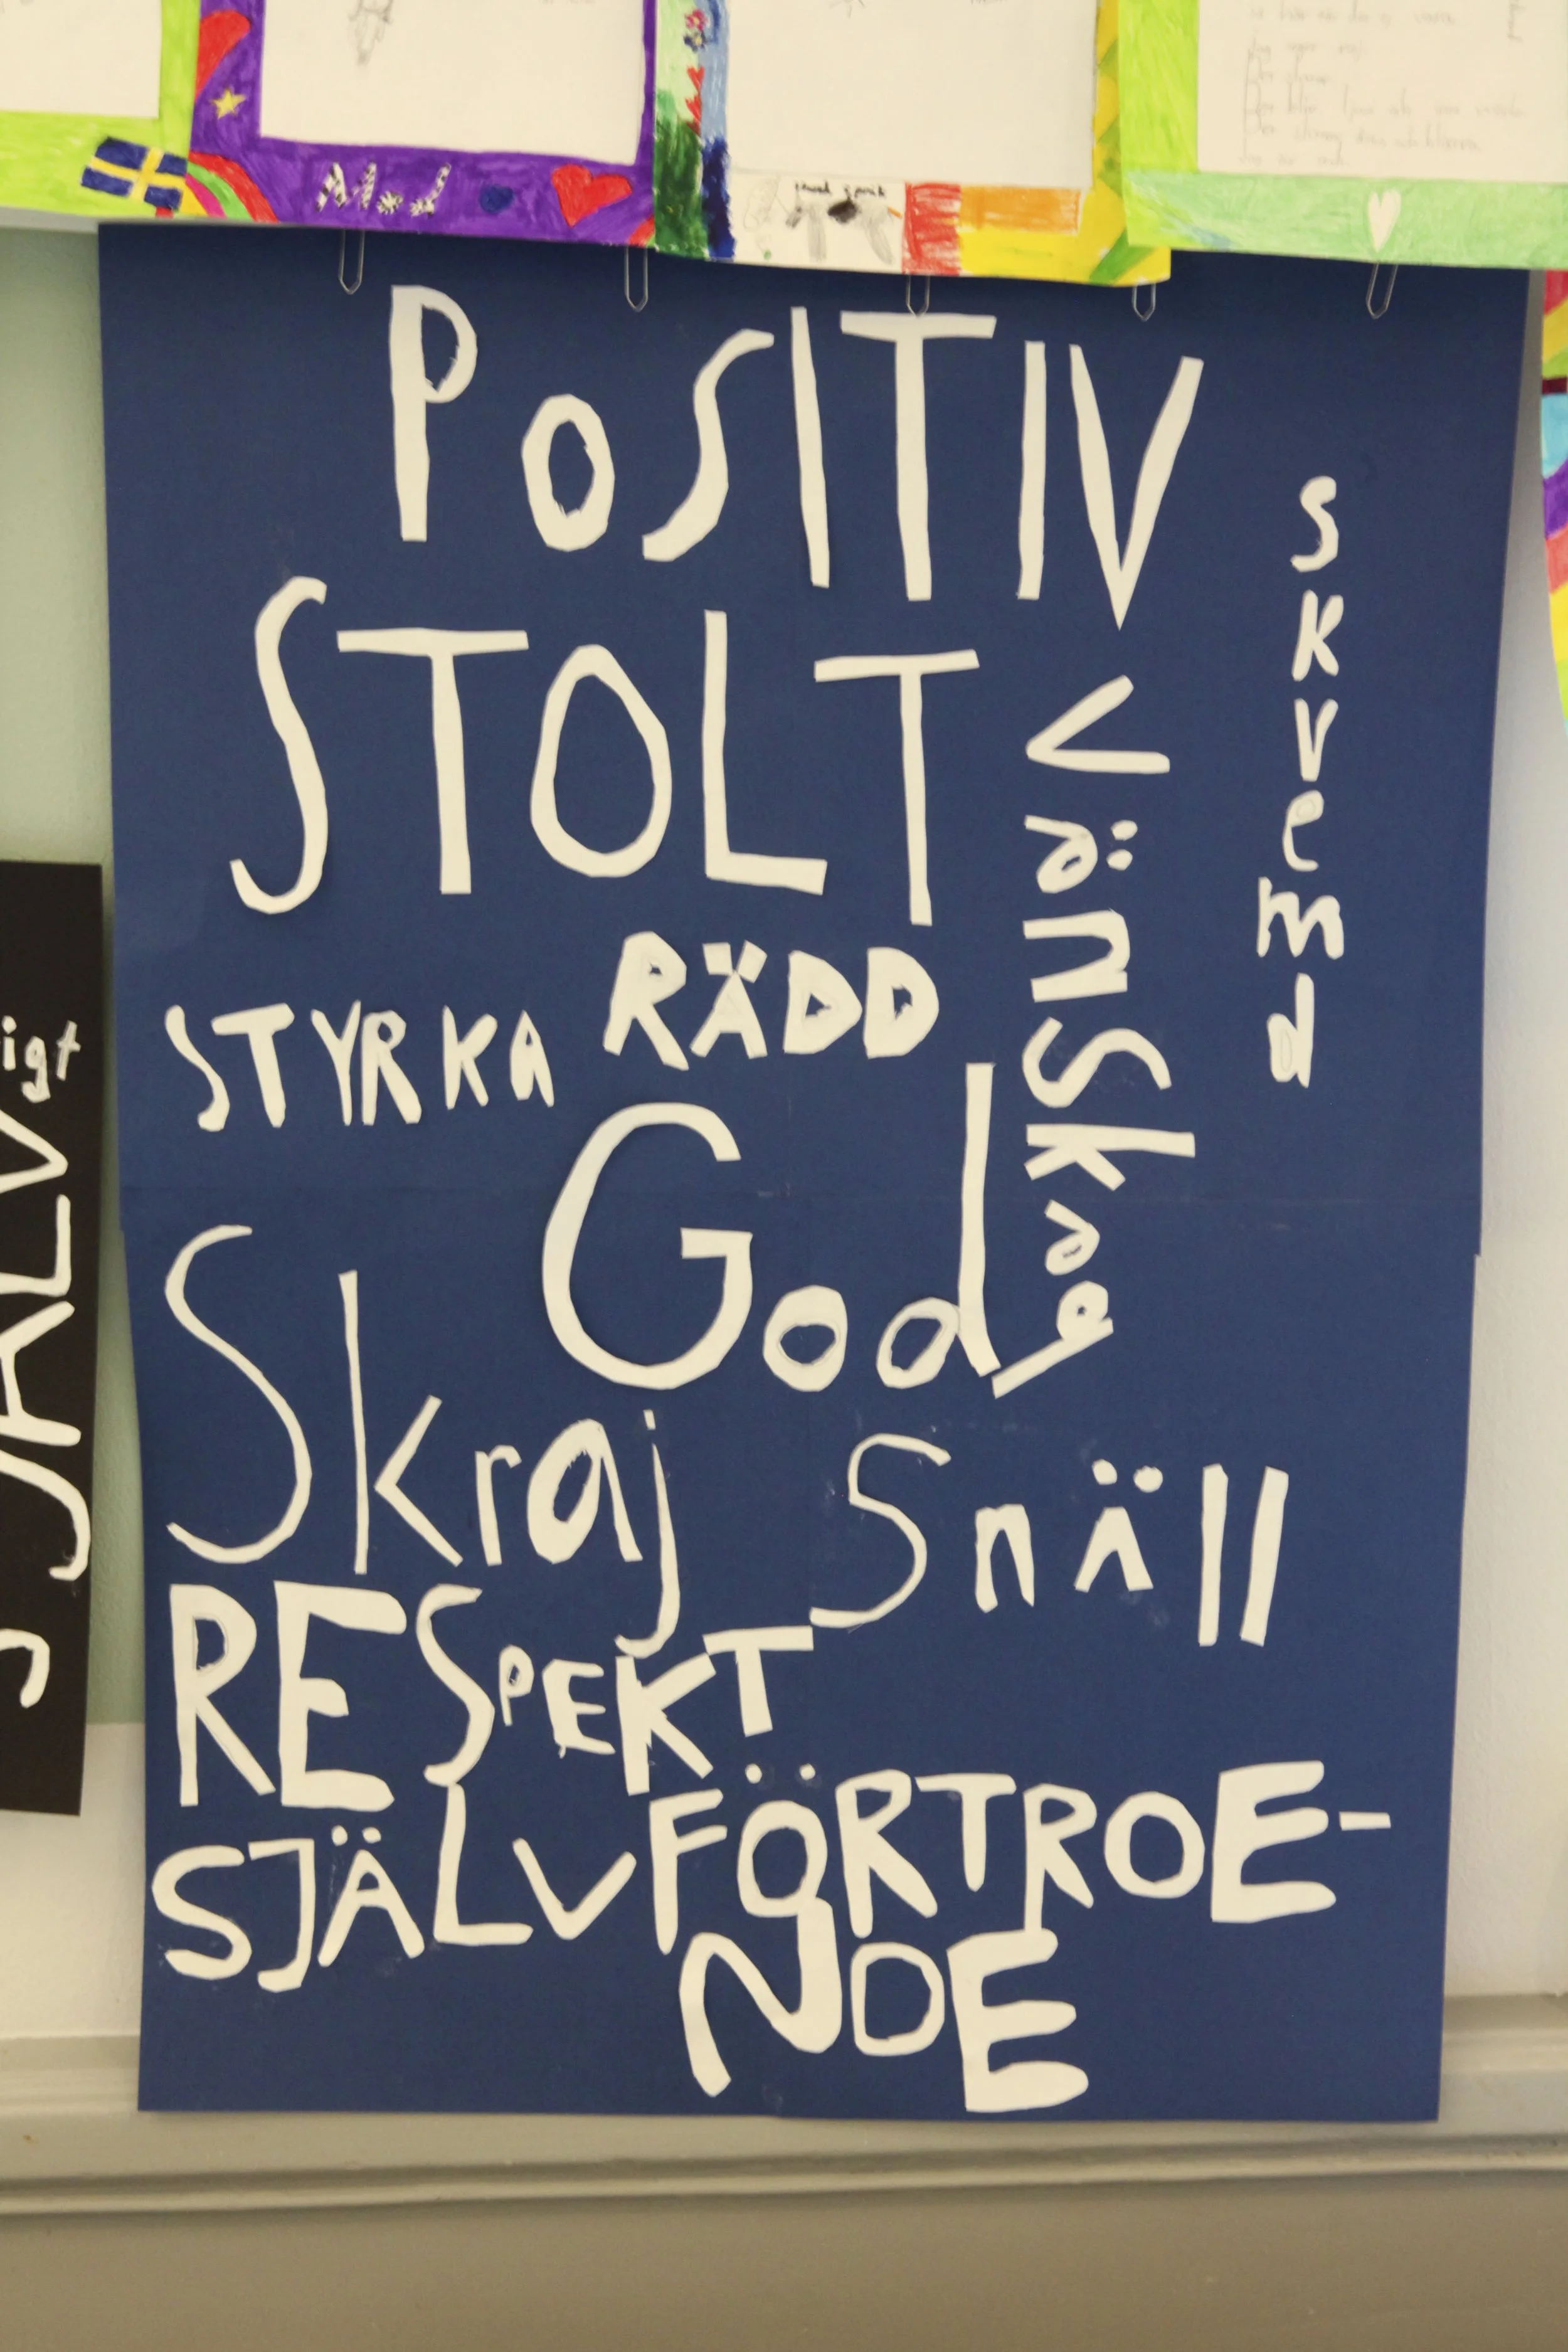 Mod
POSITIV
skvemd
STOLT
Vänskap
RÄDD
STYRKA
God
Skraj
Snäll
RESPEKT
SJÄLVFÖRTROE-
NDE
igt